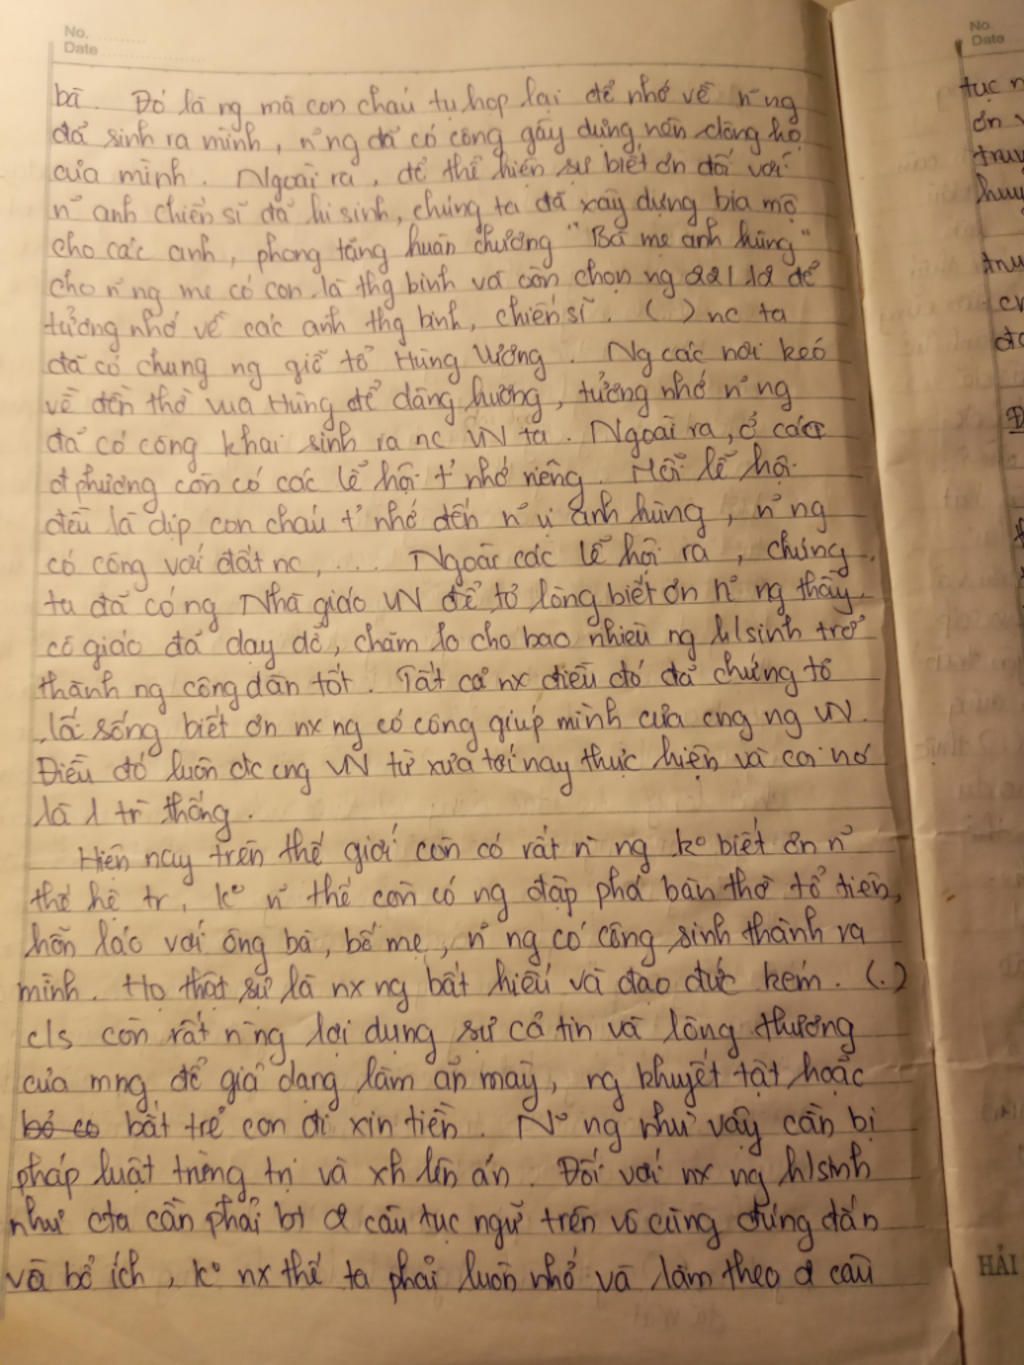 No.
Date
bà. Đó là ng mà con cháu tụ họp lại để nhớ về n~ng
đã sinh ra mình, n~ng đã có công gây dựng nên dòng họ
của mình. Ngoài ra, để thể hiện sự biết ơn đối với
n~ anh chiến sĩ đã hi sinh, chúng ta đã xây dựng bia mộ
cho các anh, phong tặng huân chương "Bà mẹ anh hùng"
cho n~ng mẹ có con là thg binh và còn chọn ng 22/12 để
tưởng nhớ về các anh thg binh, chiến sĩ. ( ) nc ta
đã có chung ng giỗ tổ Hùng Vương. Ng các nơi kéo
về đền thờ vua Hùng để dâng hương, tưởng nhớ n~ng
đã có công khai sinh ra nc VN ta. Ngoài ra, ở các
đ phương còn có các lễ hội t' nhớ riêng. Mỗi lễ hội
đều là dịp con cháu t' nhớ đến n~ vị anh hùng, n~ng
có công với đất nc, ... Ngoài các lễ hội ra, chúng
ta đã có ng Nhà giáo VN để tỏ lòng biết ơn n~ ng thầy
cô giáo đã dạy dỗ, chăm lo cho bao nhiêu ng h/sinh trở
thành ng công dân tốt. Tất cả nx điều đó đã chứng tỏ
lối sống biết ơn nx ng có công giúp mình của cng ng VN.
Điều đó luôn đc cng VN từ xưa tới nay thực hiện và coi nó
là 1 tr` thống.
Hiện nay trên thế giới còn có rất n` ng k° biết ơn n~
thế hệ tr', k° n~ thế còn có ng đập phá bàn thờ tổ tiên,
hỗn láo với ông bà, bố mẹ, n~ ng có công sinh thành ra
mình. Họ thật sự là nx ng bất hiếu và đạo đức kém. (.)
c/s còn rất n` ng lợi dụng sự cả tin và lòng thương
của mng để giả dạng làm ăn mày, ng khuyết tật hoặc
bỏ co bắt trẻ con đi xin tiền. N~ ng như vậy cần bị
pháp luật trừng trị và xh lên án. Đối với nx ng h/sinh
như cta cần phải bt đ câu tục ngữ trên vô cùng đúng đắn
và bổ ích, k° nx thế ta phải luôn nhớ và làm theo đ câu
No.
Date
tục n
ơn v
truy
huy
HẢI